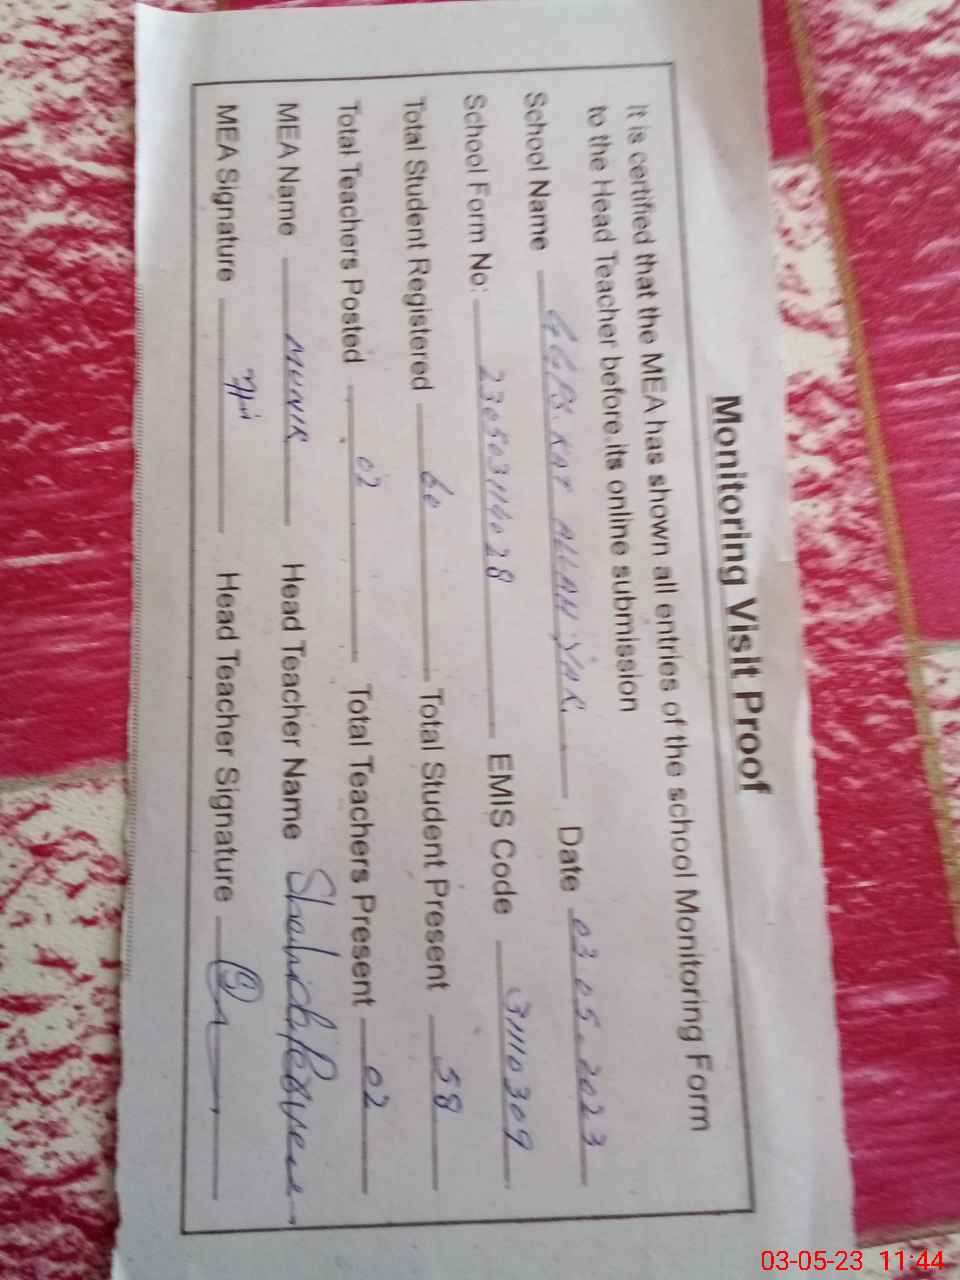 Monitoring Visit Proof
It is certified that the MEA has shown all entries of the school Monitoring Form
to the Head Teacher before its online submission
School Name GGPS KOT ALLAH YAR Date 03.05.2023
School Form No: 230503114028 EMIS Code 31110309
Total Student Registered 60 Total Student Present 58
Total Teachers Posted 02 Total Teachers Present 02
MEA Name MUNIR Head Teacher Name Shahida Perveen
MEA Signature Head Teacher Signature
03-05-23 11:44